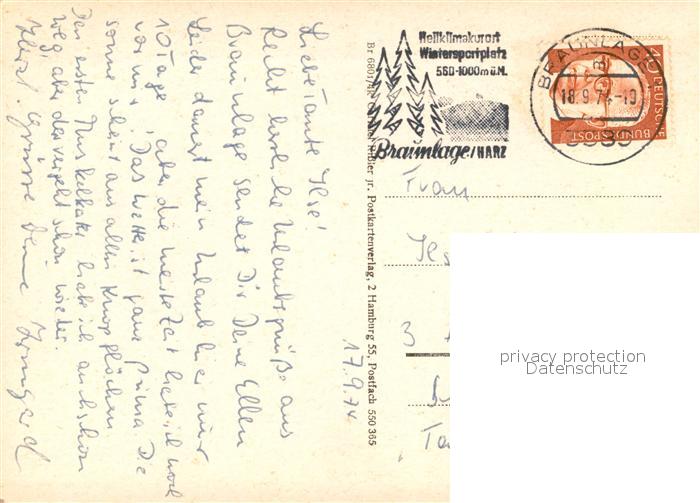 17.9.74
Liebe Tante Ilse!
Recht herzliche Urlaubsgrüße aus
Braunlage sendet Dir Deine Ellen
Leider dauert mein Urlaub hier nur
10 Tage, aber die meiste Zeit liegt noch
vor mir. Das Wetter ist ganz prima. Die
Sonne scheint aus allen Knopflöchern.
Den ersten Muskelkater habe ich auch schon
weg, aber der vergeht schon wieder.
Herzl. Grüsse Deine Irmgard
Br 6801/4R
jr. Postkartenverlag, 2 Hamburg 55, Postfach 550 365
Heilklimakurort
Wintersportplatz
560-1000m ü.M.
Braunlage/HARZ
BRAUNLAGE
18.9.74-19
DEUTSCHE
BUNDESPOST
Frau
privacy protection
Datenschutz